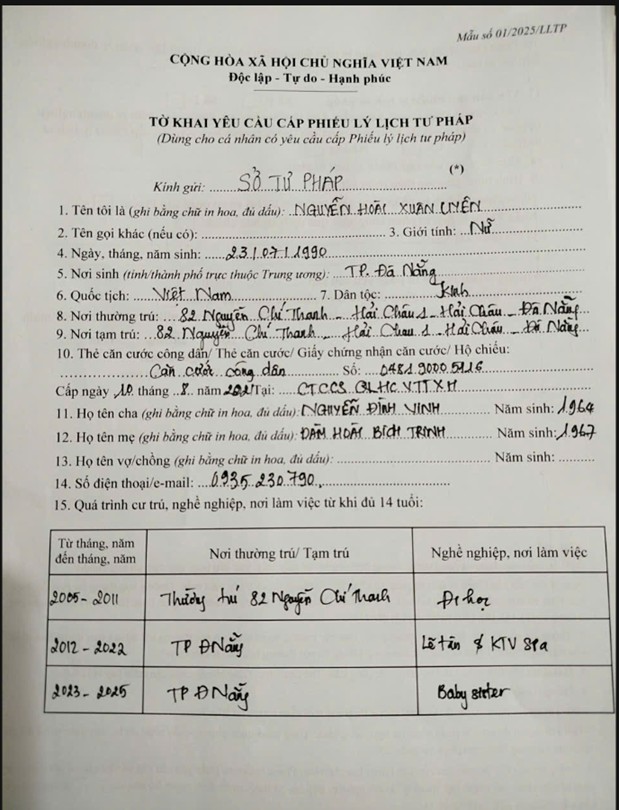 Mẫu số 01/2025/LLTP
CỘNG HÒA XÃ HỘI CHỦ NGHĨA VIỆT NAM
Độc lập - Tự do - Hạnh phúc
TỜ KHAI YÊU CẦU CẤP PHIẾU LÝ LỊCH TƯ PHÁP
(Dùng cho cá nhân có yêu cầu cấp Phiếu lý lịch tư pháp)
Kính gửi: SỞ TƯ PHÁP (*)
1. Tên tôi là (ghi bằng chữ in hoa, đủ dấu): NGUYỄN HOÀI XUÂN UYÊN
2. Tên gọi khác (nếu có): 3. Giới tính: Nữ
4. Ngày, tháng, năm sinh: 23/07/1990
5. Nơi sinh (tỉnh/thành phố trực thuộc Trung ương): TP. Đà Nẵng
6. Quốc tịch: Việt Nam 7. Dân tộc: Kinh
8. Nơi thường trú: 82 Nguyễn Chí Thanh - Hải Châu 1 - Hải Châu - Đà Nẵng
9. Nơi tạm trú: 82 Nguyễn Chí Thanh - Hải Châu 1 - Hải Châu - Đà Nẵng
10. Thẻ căn cước công dân/ Thẻ căn cước/ Giấy chứng nhận căn cước/ Hộ chiếu:
Căn cước công dân Số: 048190005116
Cấp ngày 10 tháng 8 năm 2021 Tại: CTCCS QLHC VTTXH
11. Họ tên cha (ghi bằng chữ in hoa, đủ dấu): NGUYỄN ĐÌNH VINH Năm sinh: 1964
12. Họ tên mẹ (ghi bằng chữ in hoa, đủ dấu): ĐÀM HOÀI BÍCH TRINH Năm sinh: 1967
13. Họ tên vợ/chồng (ghi bằng chữ in hoa, đủ dấu): Năm sinh:
14. Số điện thoại/e-mail: 0935 230 790
15. Quá trình cư trú, nghề nghiệp, nơi làm việc từ khi đủ 14 tuổi:
Từ tháng, năm đến tháng, năm Nơi thường trú/ Tạm trú Nghề nghiệp, nơi làm việc
2005 - 2011 Thường trú 82 Nguyễn Chí Thanh Đi học
2012 - 2022 TP ĐNẵng Lễ tân & KTV Spa
2023 - 2025 TP ĐNẵng Baby sister